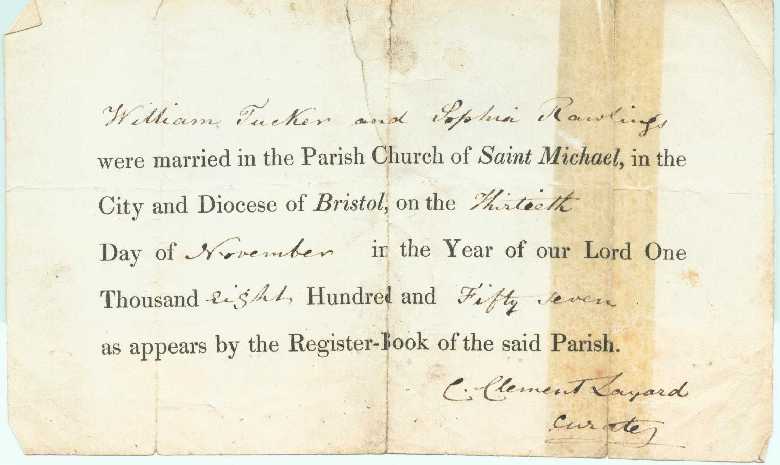 William Tucker and Sophia Rawlings
were married in the Parish Church of Saint Michael, in the
City and Diocese of Bristol, on the Thirtieth
Day of November in the Year of our Lord One
Thousand eight Hundred and Fifty seven
as appears by the Register-Book of the said Parish.
C. Clement Layard
Curate